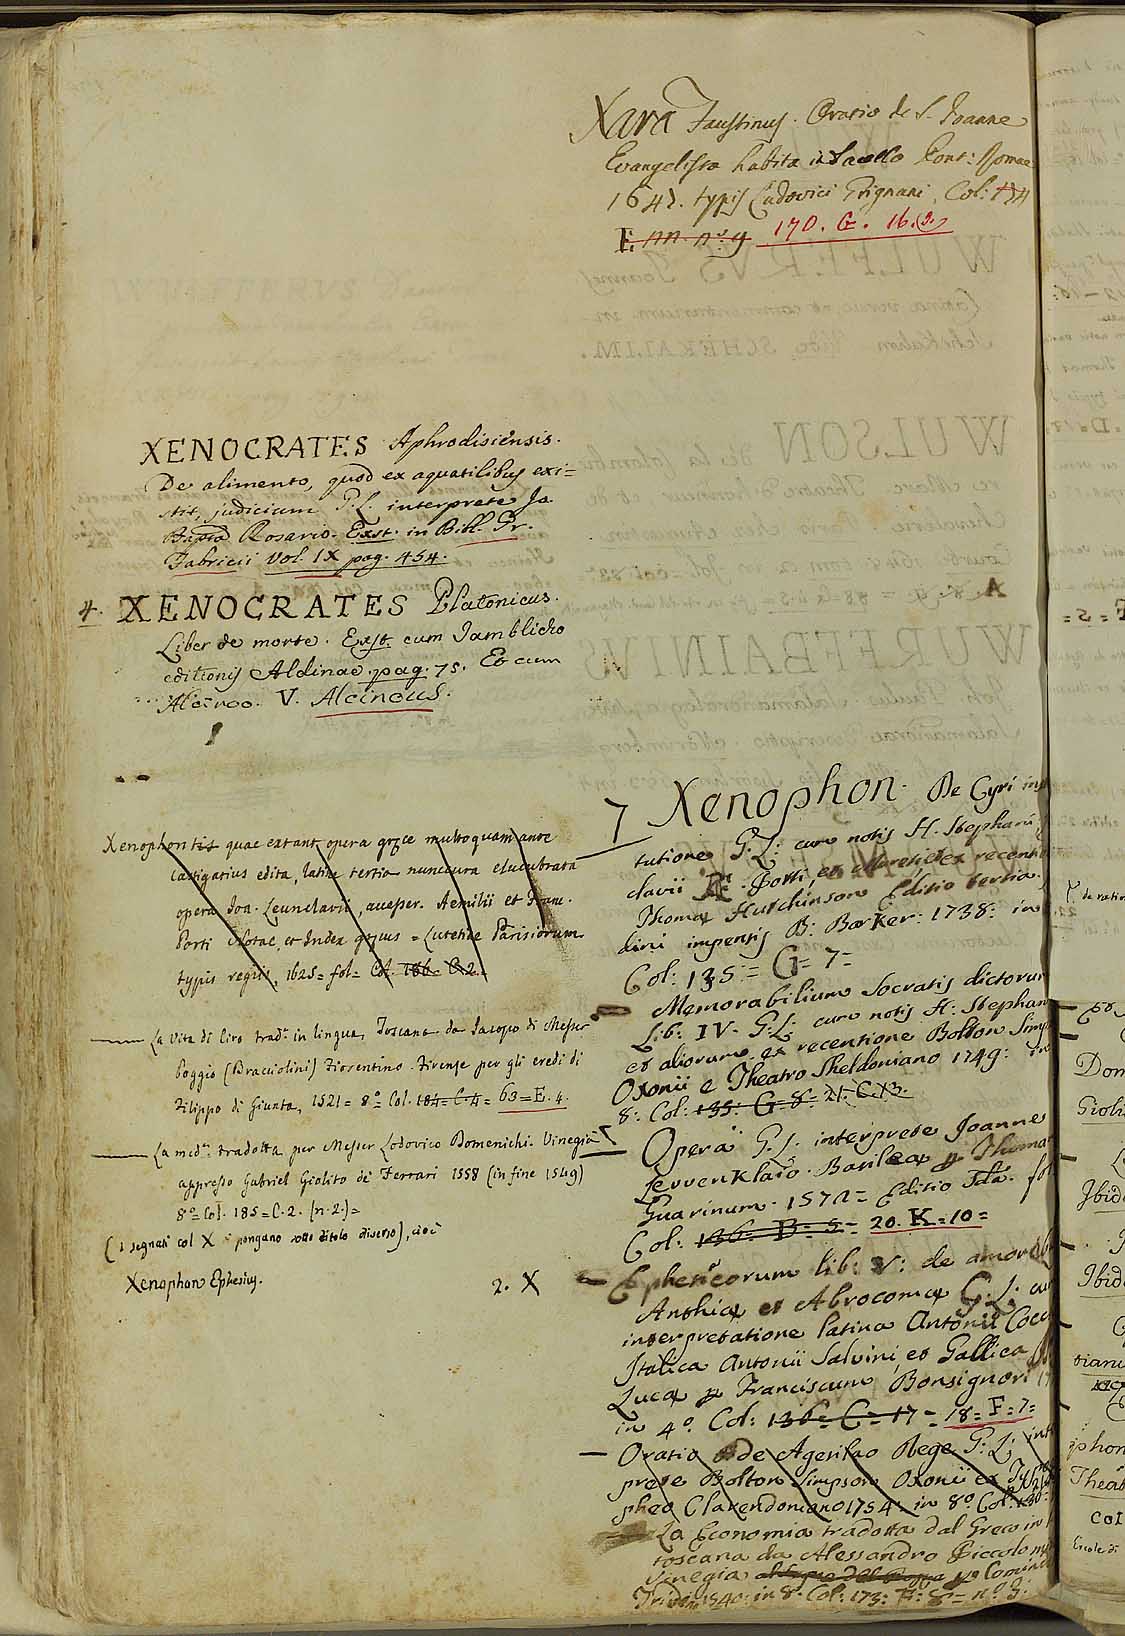 Xara Faustinus. Oratio de S. Joanne
Evangelista habita in Sacello Pont: Romae
1641. typis Ludovici Grignani, Col: 174
F. nn. nº. 9 170. G. 16.(3.
XENOCRATES Aphrodisiensis.
De alimento, quod ex aquatilibus exi=
stit, judicium G.L. interprete Jo.
Bapta Rosario. Exst. in Bibl. Gr.
Fabricii Vol. IX pag. 454.
4. XENOCRATES Platonicus.
Liber de morte. Exst. cum Jamblicho
editionis Aldinae pag. 75. Et cum
Alcinoo. V. Alcinous.
Xenophontis quae extant opera gręce multoquam ante
castigatius edita, latine tertia nunc cura elucubrata
opera Joa. Leunclavii, accesser. Aemilii et Franc.
Porti Notae, et Index gręcus = Lutetiae Parisiorum
typis regiis, 1625= fol= Col. 166= C. 2.
La Vita di Ciro tradª. in lingua Toscana da Jacopo di Messer
Poggio (Bracciolini) Fiorentino. Firenze per gli eredi di
Filippo di Giunta, 1521= 8º Col. 184= C. 4= 63=E. 4.
La medª. tradotta per Messer Lodovico Domenichi. Vinegia
appresso Gabriel Giolito de Ferrari 1558 (in fine 1549)
8º= Col. 185=C. 2. (n. 2.)=
(i segnati col X si pongano sotto titolo diverso), cioè
Xenophon Ephesius. 2. X
7 Xenophon. De Cyri ins
tutione G.L: cum notis H. Stephani
clavii Æ. Porti, et Mureti ex recens
Thomę Hutchinson Editio tertia.
dini impensis B: Barker: 1738: in
Col: 135= G= 7=
Memorabilium Socratis dictorum
Lib: IV. G:L: cum notis H: Stephan
et aliorum ex recentione Bolton Simp
Oxonii e Theatro Sheldoniano 1749: in
8: Col: 135: G= 8= 21. C. 13.
Opera G.L. interprete Joanne
Levvenklaio. Basileę p Thomam
Guarinum. 1572= Editio 2da. fol
Col: 136= B= 5= 20. K=10=
Ephesiorum lib: V: de amoribus
Anthię et Abrocomę G:L: cum
interpretatione latina Antonii Cocc
Italica Antonii Salvini, et Gallica
Lucę p Franciscum Bonsignori
in 4º. Col: 136= C= 17= 18= F=7=
Oratio de Agesilao Rege G:L: inter
prete Bolton Simpson Oxonii ex Ty
pheo Clarendoniano 1754: in 8º. Col: 136=
La Economia tradotta dal Greco in
toscana da Alessandro Piccolomi
Vinegia al segno del Pozzo pº Comin
Tridino 1540: in 8: Col: 173: F: 8= nº. 3: